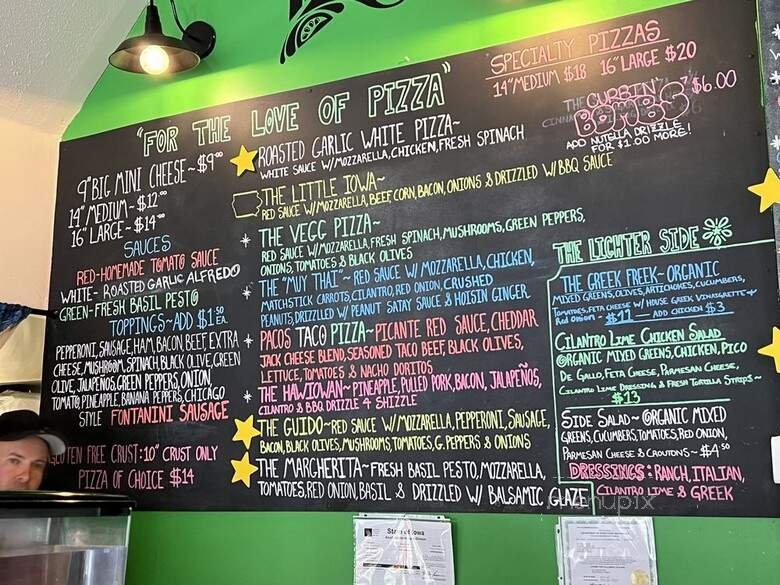 "FOR THE LOVE OF PIZZA"
9" BIG MINI CHEESE~$9.00
14" MEDIUM~$12.00
16" LARGE~$14.00
SAUCES
RED-HOMEMADE TOMATO SAUCE
WHITE- ROASTED GARLIC ALFREDO
GREEN-FRESH BASIL PESTO
TOPPINGS~ADD $1 EA
PEPPERONI, SAUSAGE, HAM, BACON, BEEF, EXTRA
CHEESE, MUSHROOM, SPINACH, BLACK OLIVE, GREEN
OLIVE, JALAPEÑOS, GREEN PEPPERS, ONION,
TOMATO, PINEAPPLE, BANANA PEPPERS, CHICAGO
STYLE FONTANINI SAUSAGE
GLUTEN FREE CRUST: 10" CRUST ONLY
PIZZA OF CHOICE $14
ROASTED GARLIC WHITE PIZZA~
WHITE SAUCE W/MOZZARELLA, CHICKEN, FRESH SPINACH
THE LITTLE IOWA~
RED SAUCE W/MOZZARELLA, BEEF, CORN, BACON, ONIONS & DRIZZLED W/ BBQ SAUCE
THE VEGG PIZZA~
RED SAUCE W/MOZZARELLA, FRESH SPINACH, MUSHROOMS, GREEN PEPPERS,
ONIONS, TOMATOES & BLACK OLIVES
THE "MUY THAI"~ RED SAUCE W/ MOZZARELLA, CHICKEN,
MATCHSTICK CARROTS, CILANTRO, RED ONION, CRUSHED
PEANUTS, DRIZZLED W/ PEANUT SATAY SAUCE & HOISIN GINGER
PACOS TACO PIZZA~ PICANTE RED SAUCE, CHEDDAR
JACK CHEESE BLEND, SEASONED TACO BEEF, BLACK OLIVES,
LETTUCE, TOMATOES & NACHO DORITOS
THE HAWIOWAN~ PINEAPPLE, PULLED PORK, BACON, JALAPEÑOS,
CILANTRO & BBQ DRIZZLE 4 SHIZZLE
THE GUIDO~ RED SAUCE W/MOZZARELLA, PEPPERONI, SAUSAGE,
BACON, BLACK OLIVES, MUSHROOMS, TOMATOES, G. PEPPERS & ONIONS
THE MARGHERITA~ FRESH BASIL PESTO, MOZZARELLA,
TOMATOES, RED ONION, BASIL & DRIZZLED W/ BALSAMIC GLAZE
SPECIALTY PIZZAS
14" MEDIUM $18 16" LARGE $20
THE CURBIN' $6.00
BOMBS
ADD NUTELLA DRIZZLE
FOR $1.00 MORE!
THE LIGHTER SIDE
THE GREEK FREEK- ORGANIC
MIXED GREENS, OLIVES, ARTICHOKES, CUCUMBERS,
TOMATOES, FETA CHEESE W/ HOUSE GREEK VINAIGRETTE +
RED ONION - $11 - ADD CHICKEN $3
CILANTRO LIME CHICKEN SALAD
ORGANIC MIXED GREENS, CHICKEN, PICO
DE GALLO, FETA CHEESE, PARMESAN CHEESE,
CILANTRO LIME DRESSING & FRESH TORTILLA STRIPS~
$13
SIDE SALAD~ ORGANIC MIXED
GREENS, CUCUMBERS, TOMATOES, RED ONION,
PARMESAN CHEESE & CROUTONS~ $4.50
DRESSINGS: RANCH, ITALIAN,
CILANTRO LIME & GREEK
menupix
State of Iowa